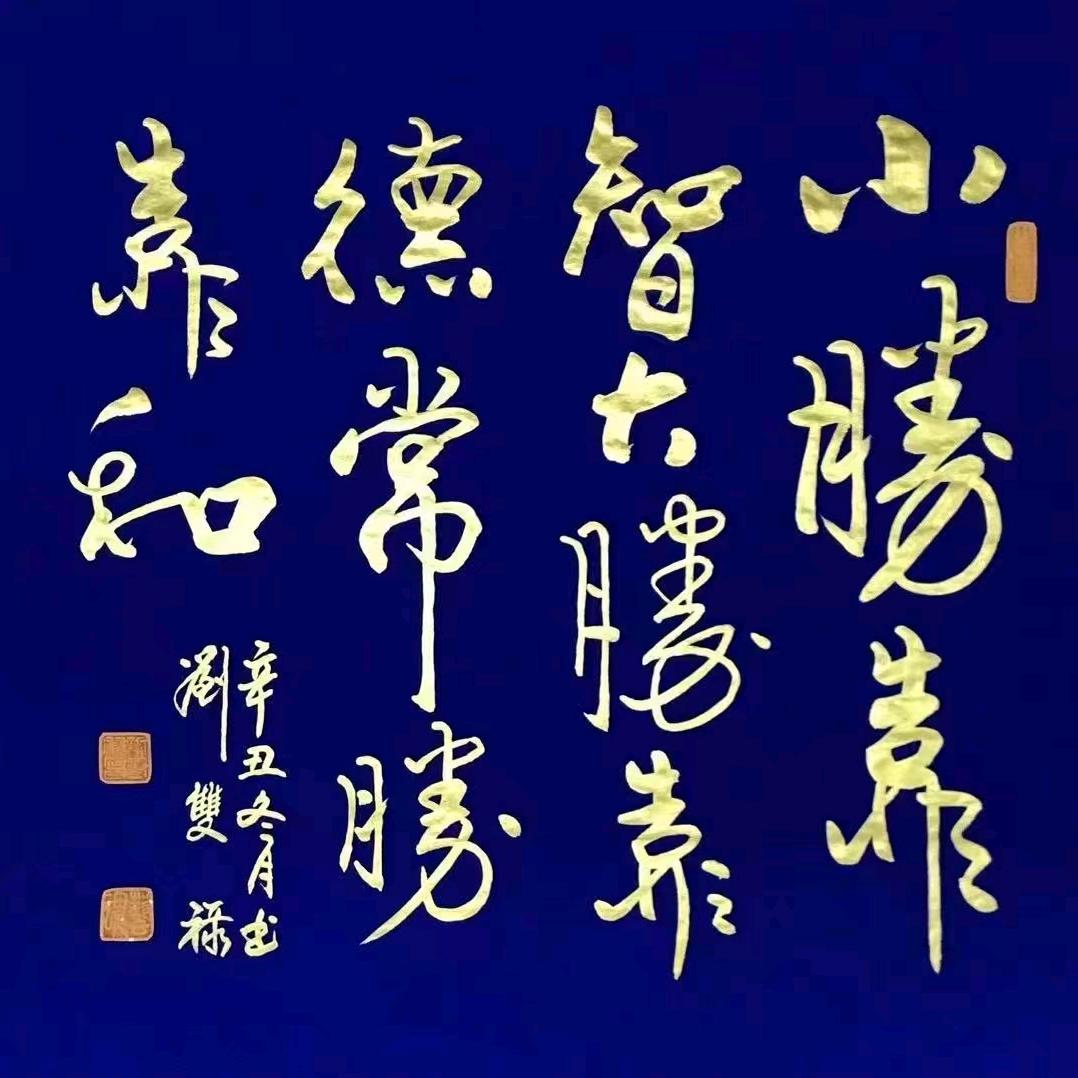 小勝靠
智大勝靠
德常勝
靠和
辛丑冬月书
劉雙祿